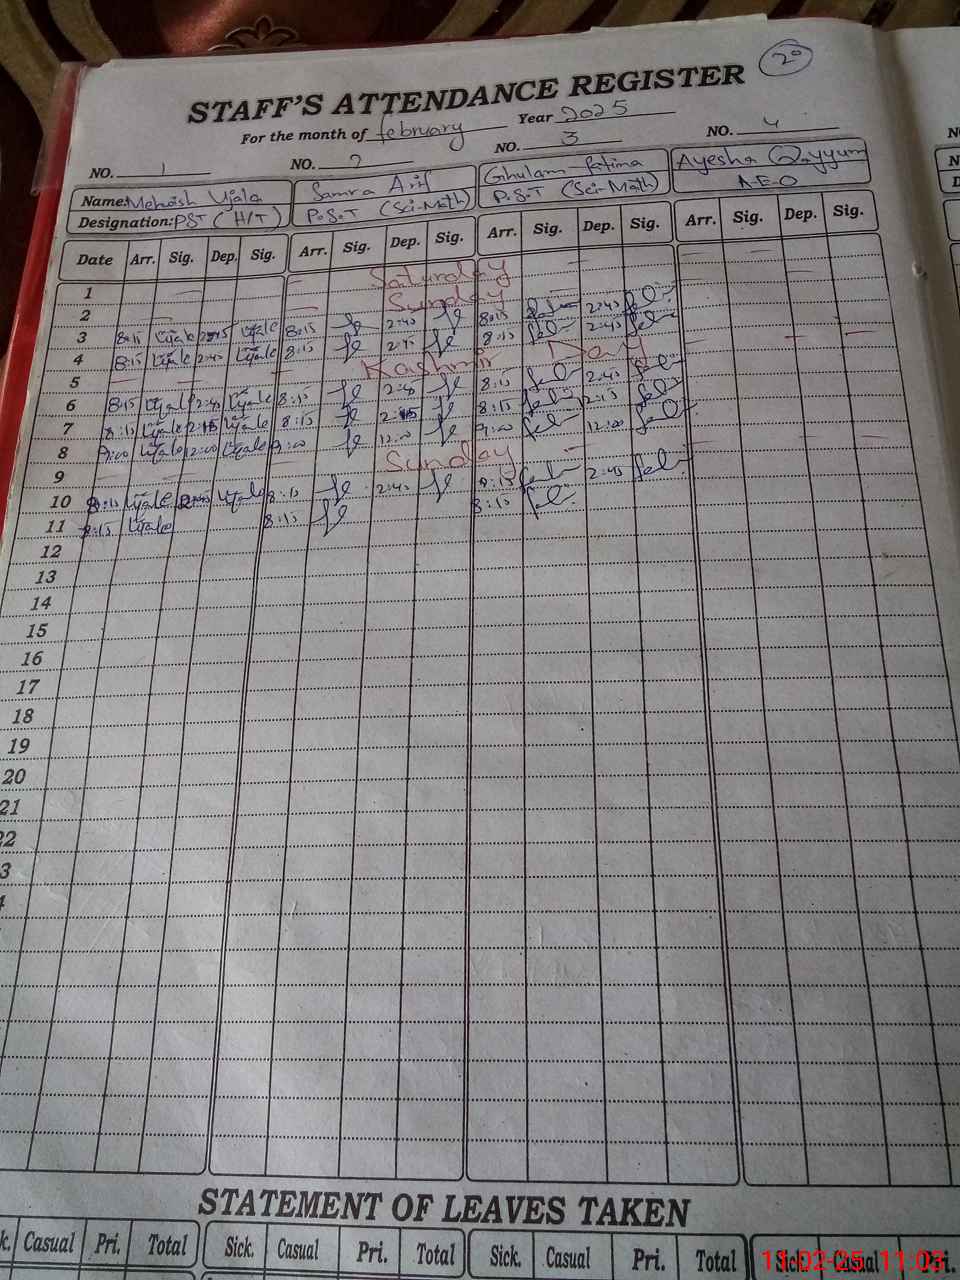 20
STAFF'S ATTENDANCE REGISTER
For the month of february Year 2025
NO. 1 NO. 2 NO. 3 NO. 4
Name: Mehvish Ujala Samra Arif Ghulam Fatima Ayesha Qayyum
Designation: PST (H/T) P.S.T (Sci-Math) P.S.T (Sci-Math) A.E.O
Date Arr. Sig. Dep. Sig. Arr. Sig. Dep. Sig. Arr. Sig. Dep. Sig. Arr. Sig. Dep. Sig.
1 Saturday
2 Sunday
3 8:15 Ujale 2:45 Ujale 8:15 2:45 8:15 2:45
4 8:15 Ujale 2:45 Ujale 8:15 2:45 8:15 2:45
5 Kashmir Day
6 8:15 Ujale 2:45 Ujale 8:15 2:45 8:15 2:45
7 8:15 Ujale 2:15 Ujale 8:15 2:15 8:15 2:15
8 9:00 Ujale 12:00 Ujale 9:00 12:00 9:00 12:00
9 Sunday
10 8:15 Ujale 2:45 Ujale 8:15 2:45 8:15 2:45
11 8:15 Ujale 8:15 8:15
12
13
14
15
16
17
18
19
20
21
22
3
4
STATEMENT OF LEAVES TAKEN
k. Casual Pri. Total Sick. Casual Pri. Total Sick. Casual Pri. Total Sick. Casual Pri.
11-02-25 11:03